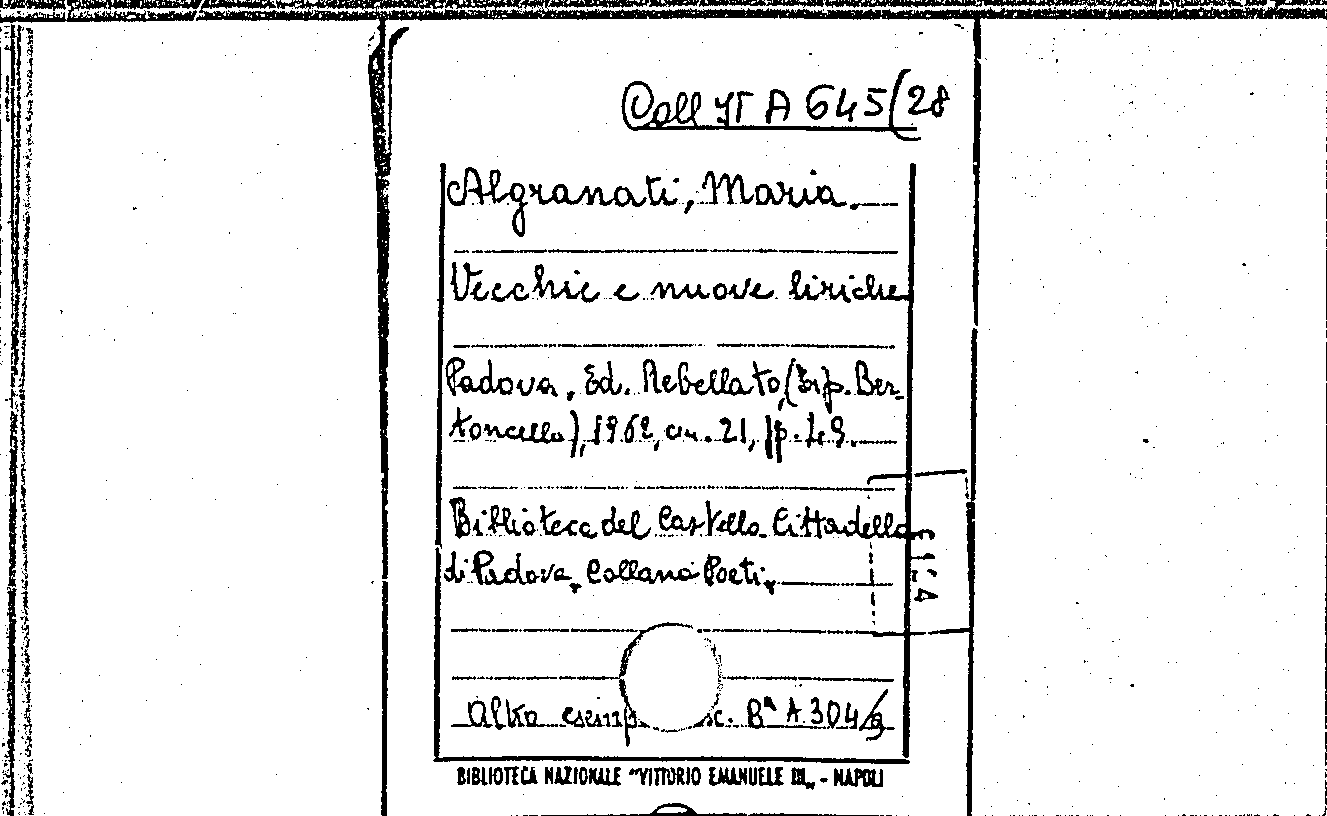 Coll IT A 645(28
Algranati, Maria.
Vecchie e nuove liriche
Padova, Ed. Rebellato, (Tip. Ber-
toncello), 1962, cm. 21, p. 49.
Biblioteca del Castello Cittadella
di Padova, Collana Poeti,
Altro esemp sc. Bª A 304/9
BIBLIOTECA NAZIONALE "VITTORIO EMANUELE III„ - NAPOLI